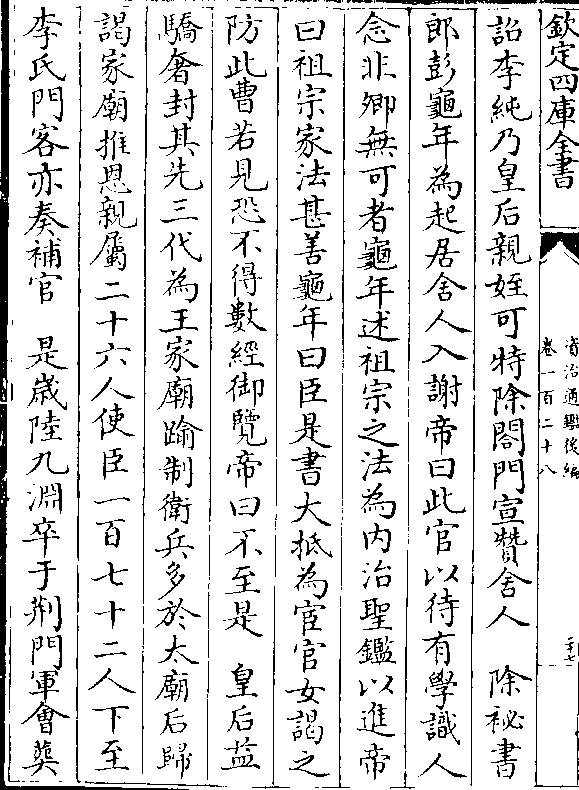 欽定四庫全書
資治通鑑後編
卷一百二十八
二十七
詔李純乃皇后親姪可特除閤門宣贊舍人　除祕書
郎彭龜年為起居舍人入謝帝曰此官以待有學識人
念非卿無可者龜年述祖宗之法為内治聖鑑以進帝
曰祖宗家法甚善龜年曰臣是書大抵為宦官女謁之
防此曹若見恐不得數經御覽帝曰不至是　皇后益
驕奢封其先三代為王家廟踰制衛兵多於太廟后歸
謁家廟推恩親屬二十六人使臣一百七十二人下至
李氏門客亦奏補官　是歲陸九淵卒于荆門軍會葬